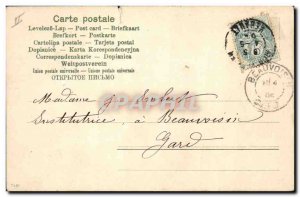 Carte postale
Levelező-Lap — Post card — Briefkaart
Brefkort — Postkarte
Cartolina postale — Tarjeta postal
Dopisnice — Karta Korespondencyjna
Correspondenzkarte — Dopisnica
Weltpostverein
Union postale universelle — Union postale universelle
ОТКРЫТОЕ ПИСЬМО
Madame
Institutrice, à Beauvoisin
Gard